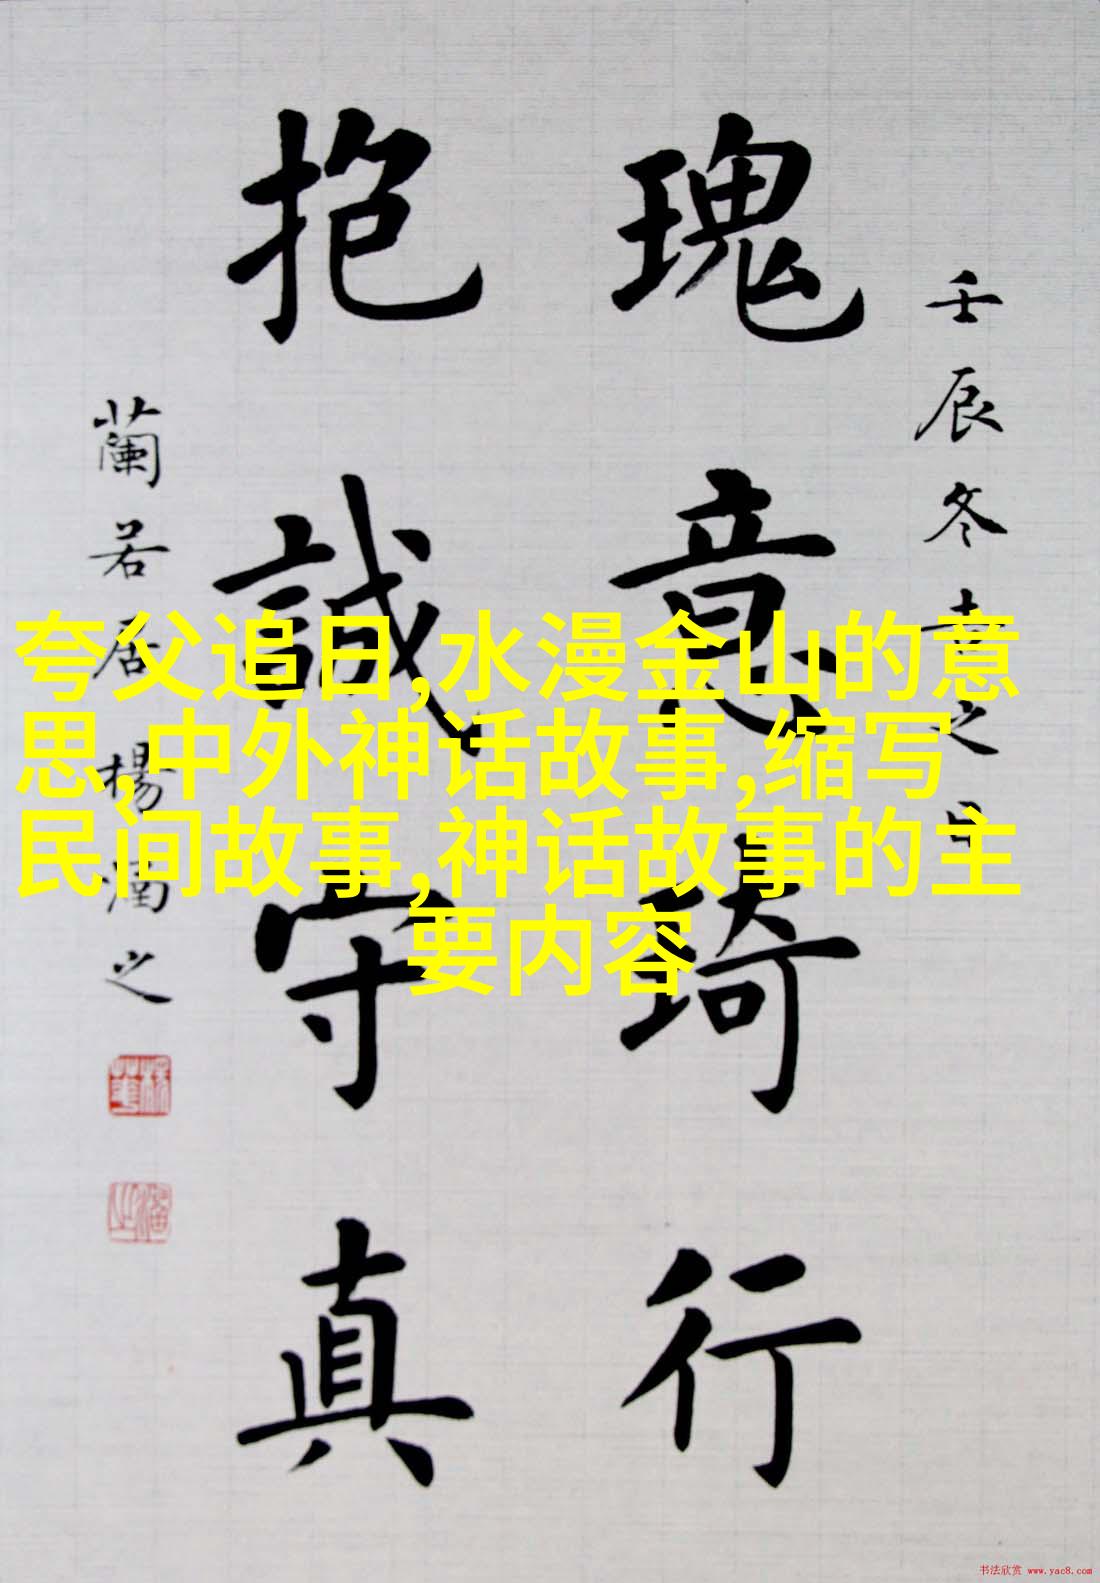 壬辰冬
瑰意琦行
抱誠守真
蘭若居楊之
夸父追日,水漫金山的意
思,中外神话故事,缩写
民间故事,神话故事的主
要内容
书法欣赏 www.yac8.com